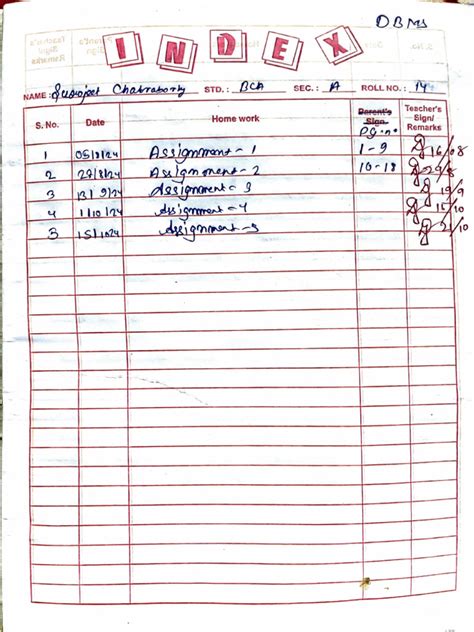 DBMS
INDEX
NAME : Chakraborty STD. : BCA SEC. : A ROLL NO. : 14
S. No. Date Home work Parent's Sign. Pg. no. Teacher's Sign/ Remarks
1 05/8/24 Assignment - 1 1-9 16/08
2 27/8/24 Assignment - 2 10-18 29/8
3 13/9/24 Assignment - 3 19/9
4 1/10/24 Assignment - 4 15/10
5 15/10/24 Assignment - 5 21/10